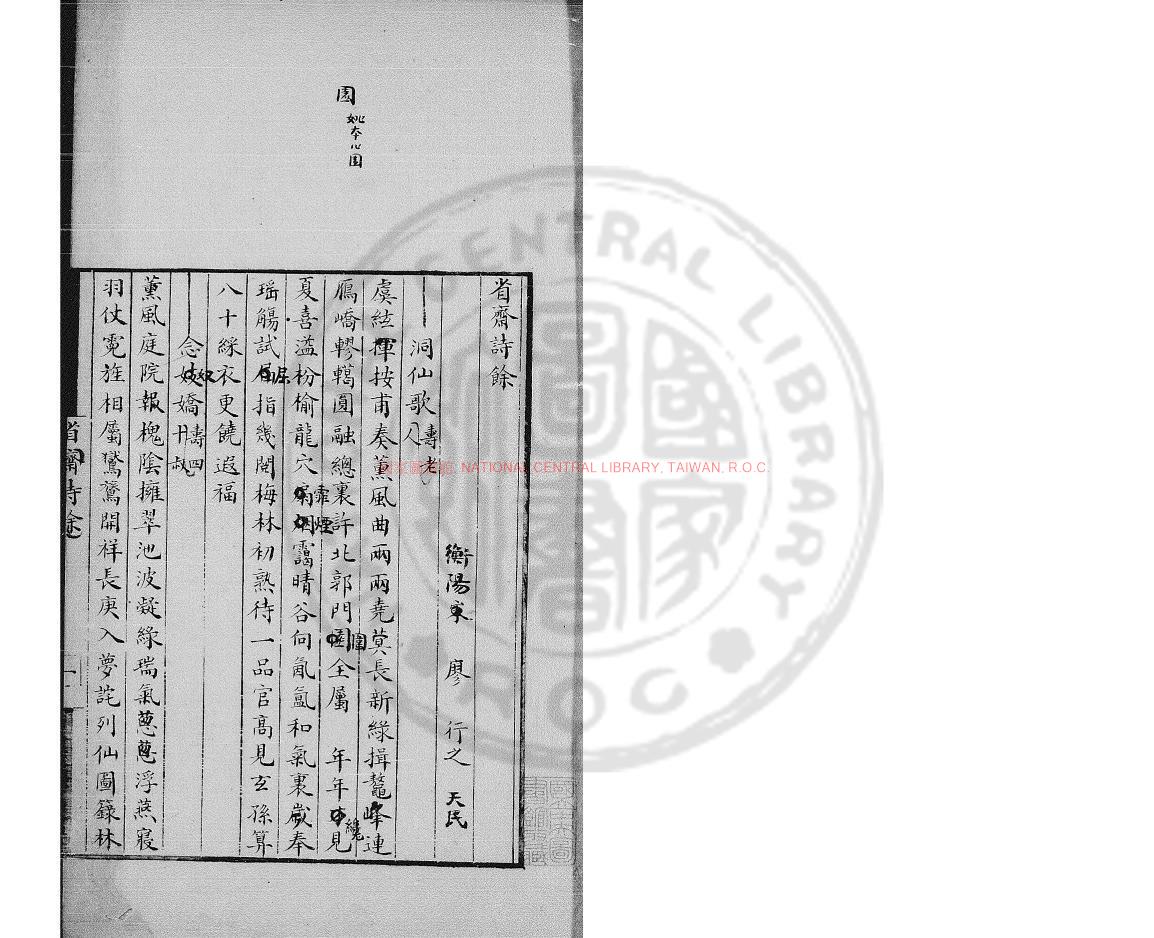 園
姚本心園
省齋詩餘
衡陽 廖 行之 天民
洞仙歌 壽老人
虞絃揮按甫奏薰風曲兩兩堯蓂長新綠揖鼇峰連
鴈嶠轇轕圓融總裏許北郭門 圍全屬 年年 纔見
夏喜溢枌榆龍穴 霏煙靄晴谷向氤氳和氣裏歲奉
瑤觴試 屈指幾閱梅林初熟待一品官高見玄孫算
八十綵衣更饒遐福
念奴嬌 壽四十叔
薰風庭院報槐陰擁翠池波凝綠瑞氣蔥蔥浮燕寢
羽仗霓旌相屬鸑鷟開祥長庚入夢詫列仙圖籙林
省齋詩余
一
國家圖書館, NATIONAL CENTRAL LIBRARY, TAIWAN, R.O.C.
CENTRAL LIBRARY
ROC